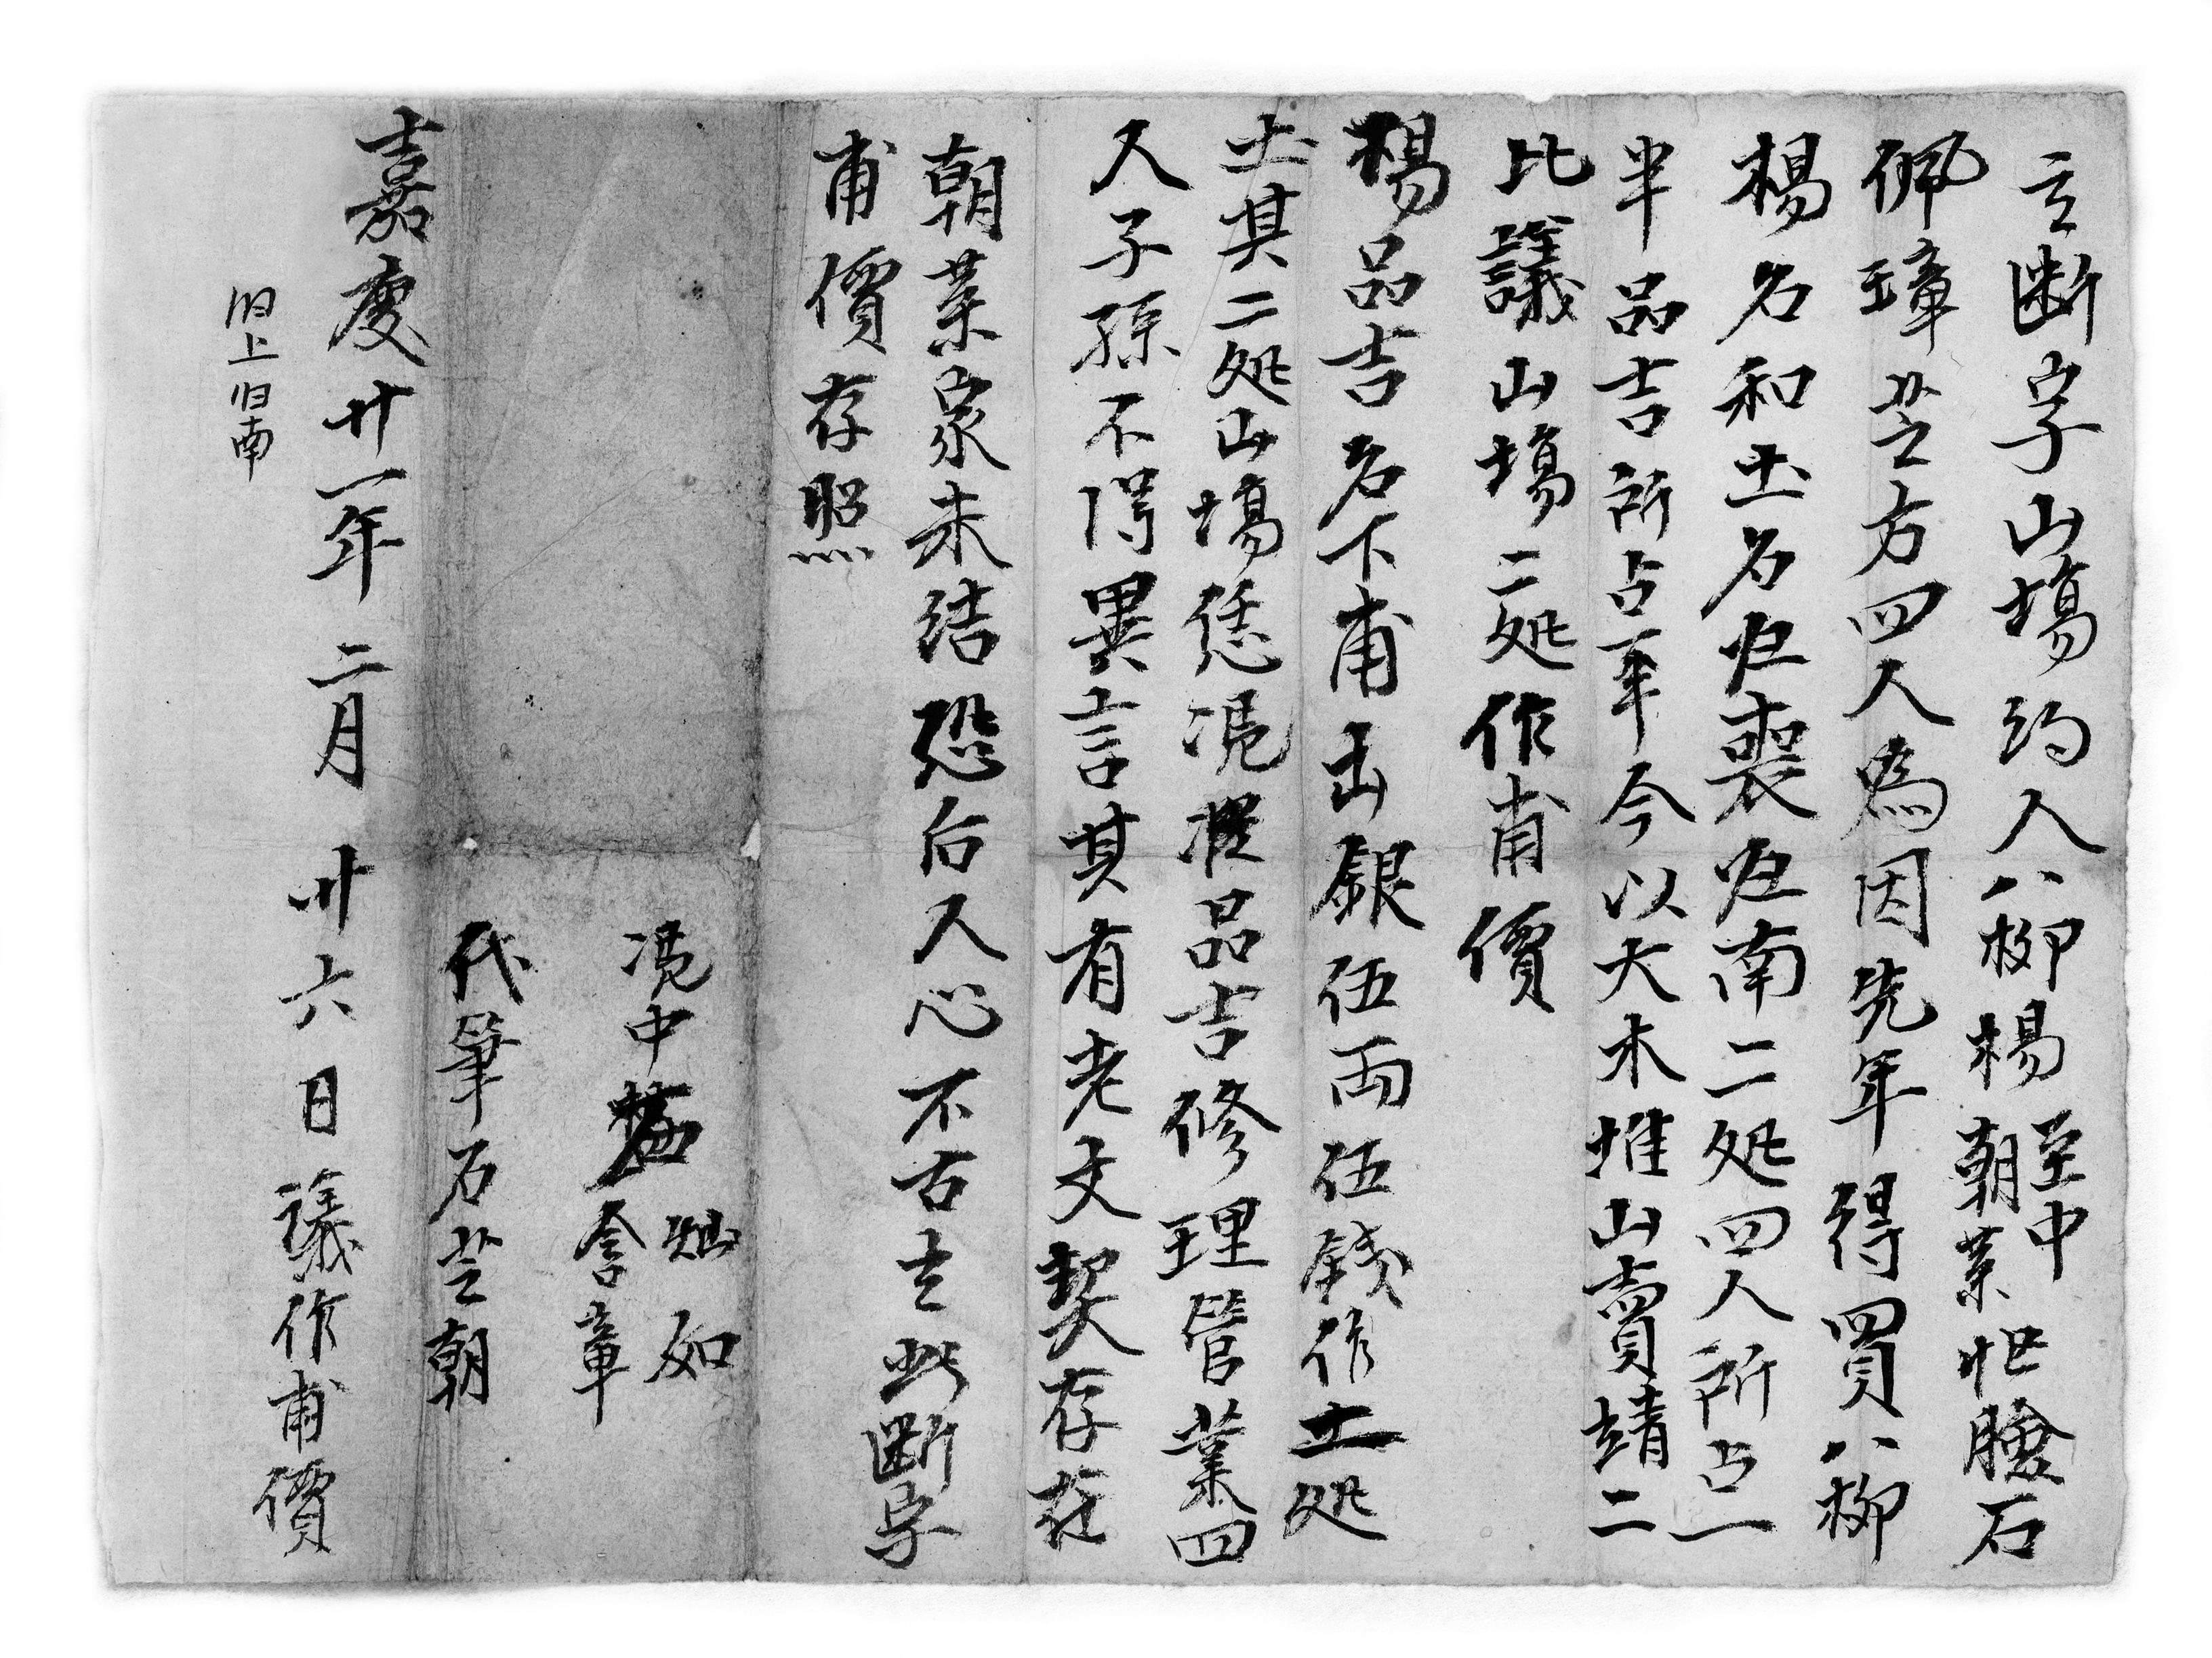 立断字山塲约人八柳楊至中朝業世膾石
佩璋芝方四人為因先年得買八柳
楊名和土名㘴喪㘴南二処四人所占一
半品吉所占一半今以大木堆山賣靖二
比議山塲二処作甫價
楊品吉名下甫出銀伍両伍錢作土処
土其二処山塲恁凴品吉修理管業四
人子孫不得異言其有老文契存在
朝業家未结恐后人心不古立此斷字
甫價存照
凴中楊灿如
含章
代筆石芝朝
嘉慶廿一年二月廿六日議作甫價
旧上旧南